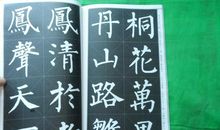 桐花萬里
丹山路雛
鳳清於
鳳聲天